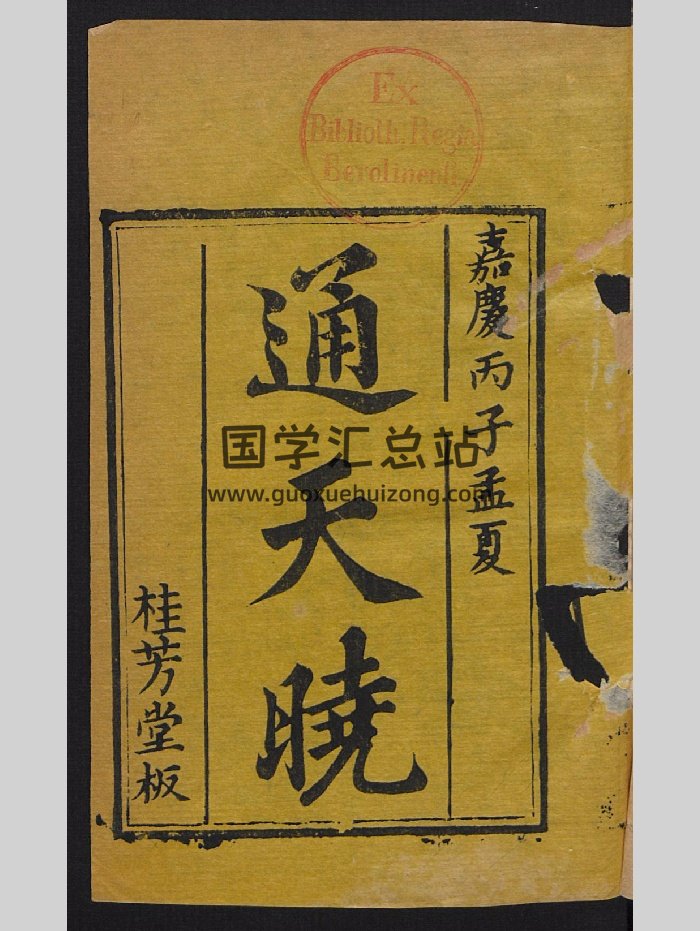 Ex
Biblioth. Regia
Berolinensi.
嘉慶丙子孟夏
通天曉
桂芳堂板
国学汇总站
www.guoxuehuizong.com